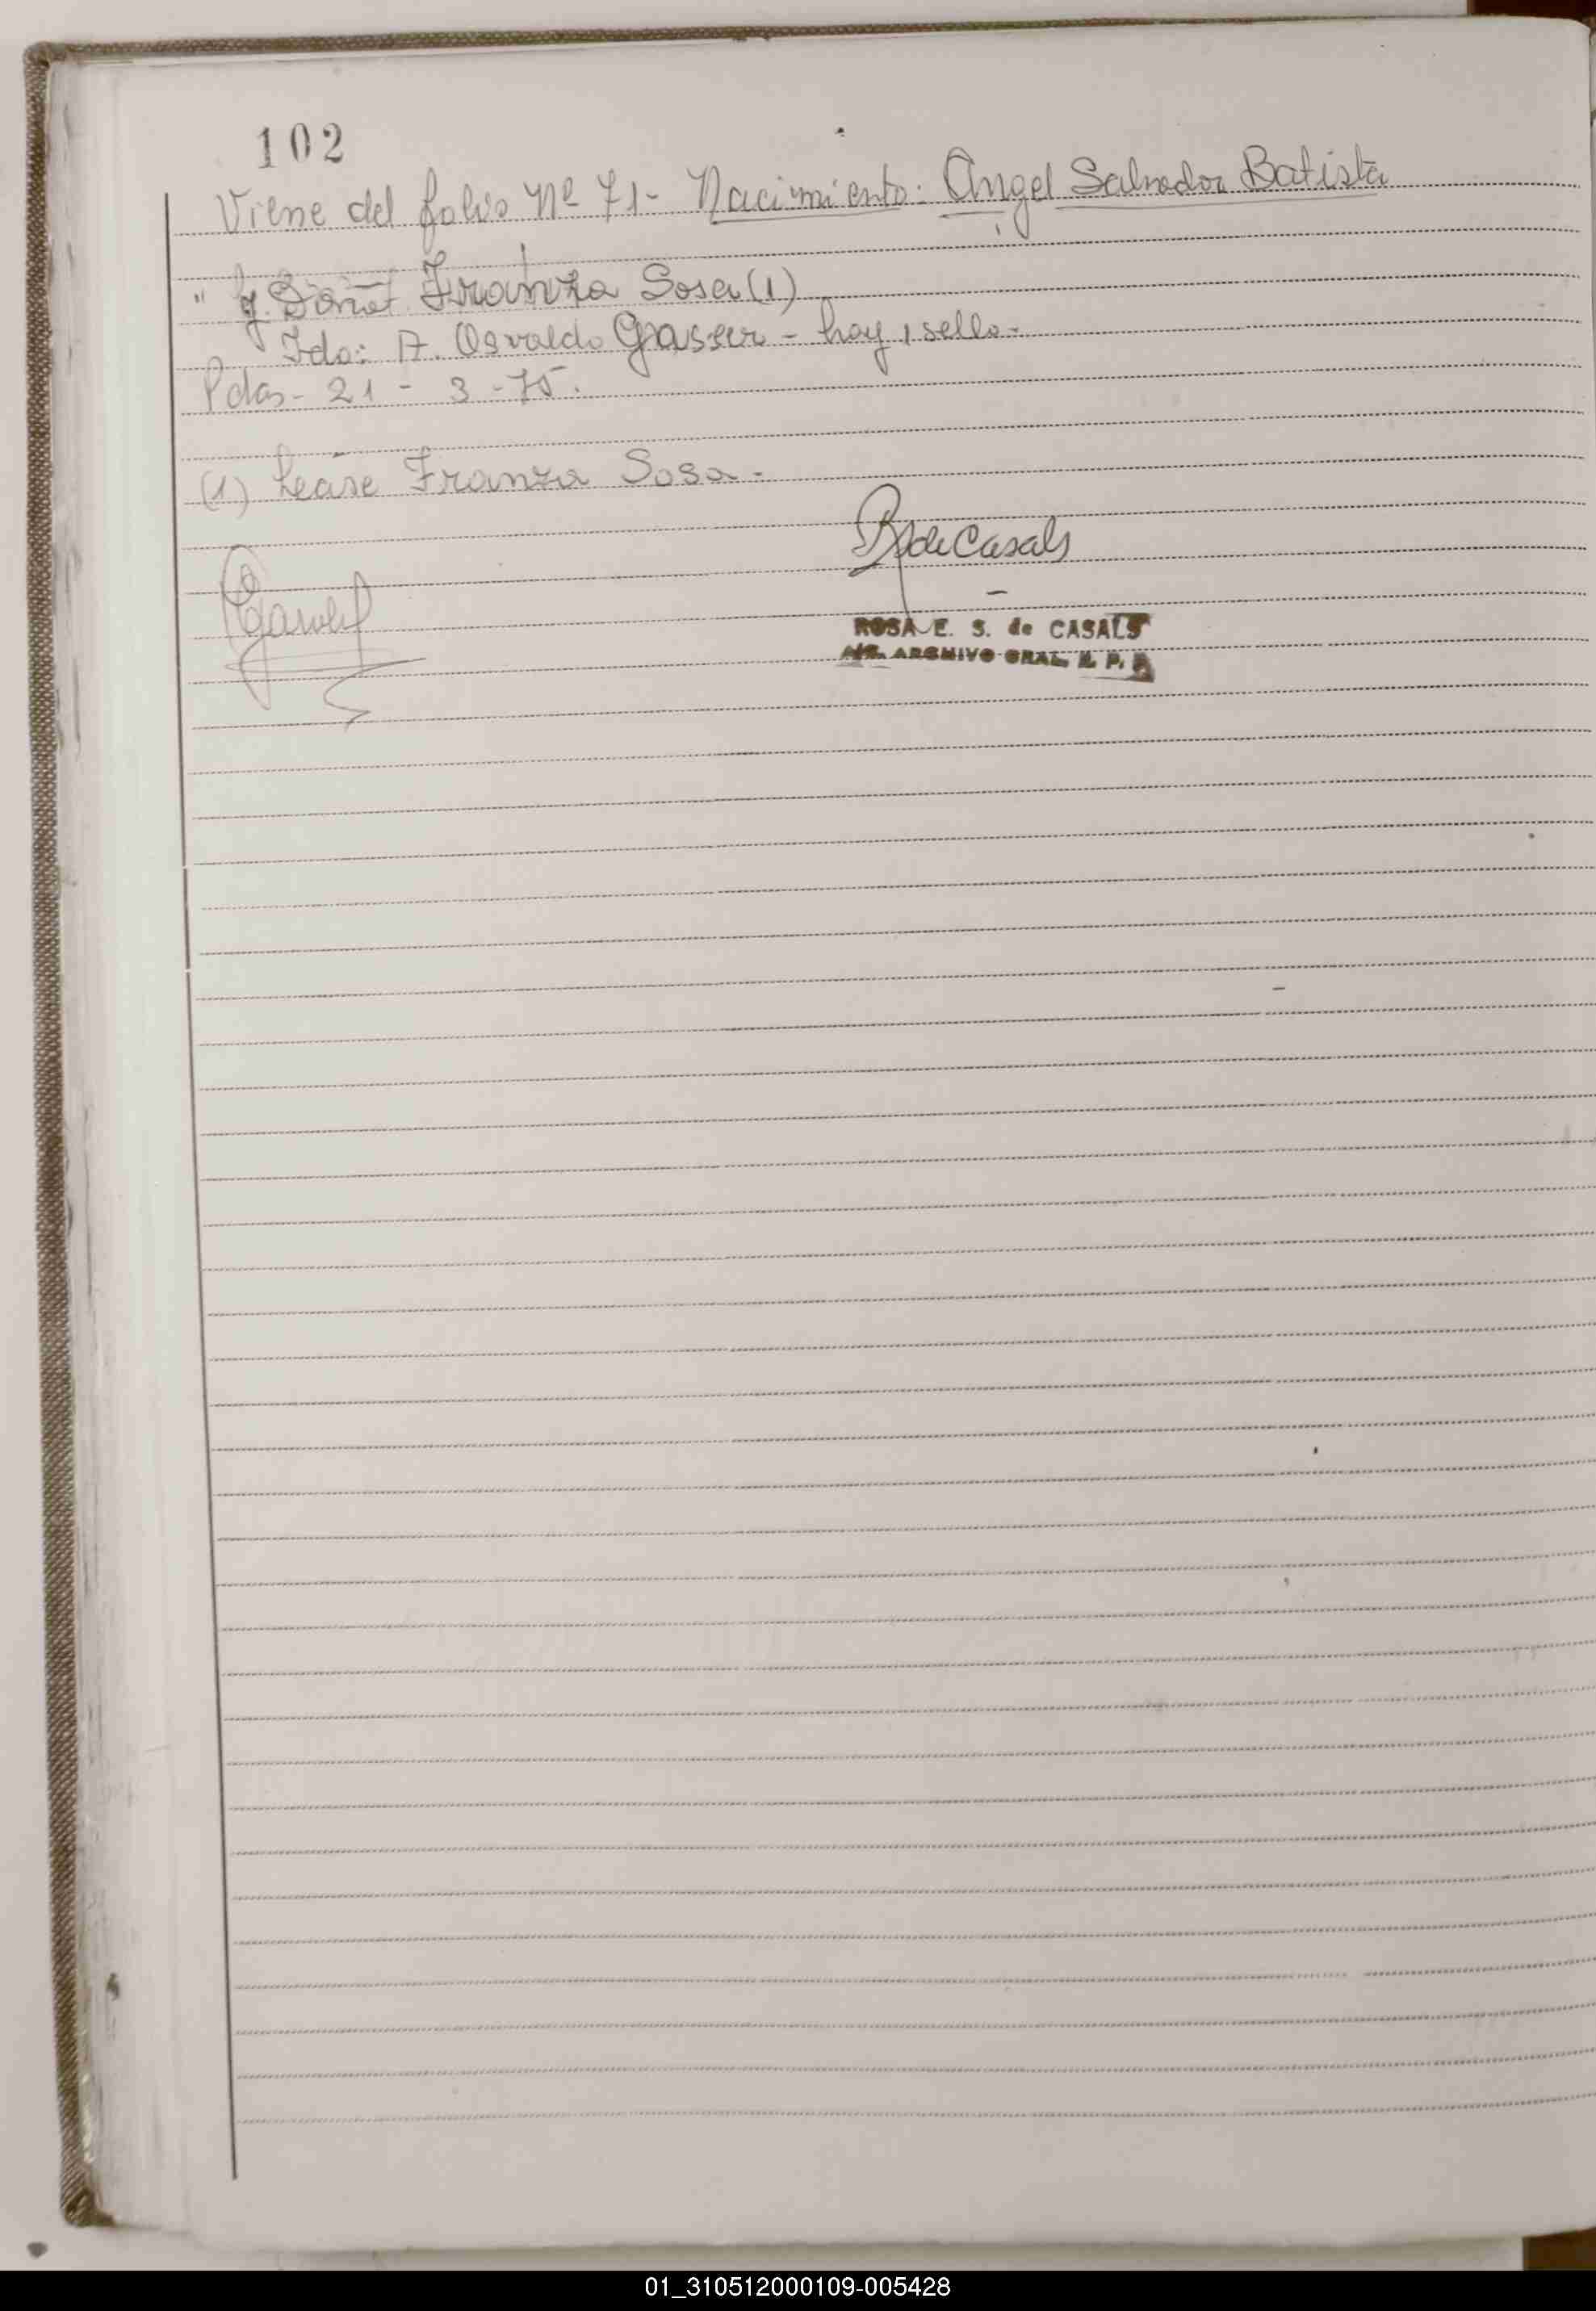 102
Viene del folio Nº 71- Nacimiento: Angel Salvador Batista
" Franza Sosa (1)
Fdo: A. Osvaldo Gasser - hay 1 sello-
Pdas- 21 - 3 -75.
(1) Léase Franza Sosa -
RdeCasals
ROSA E. S. de CASALS
ARCHIVO GRAL. R. P.
01_310512000109-005428